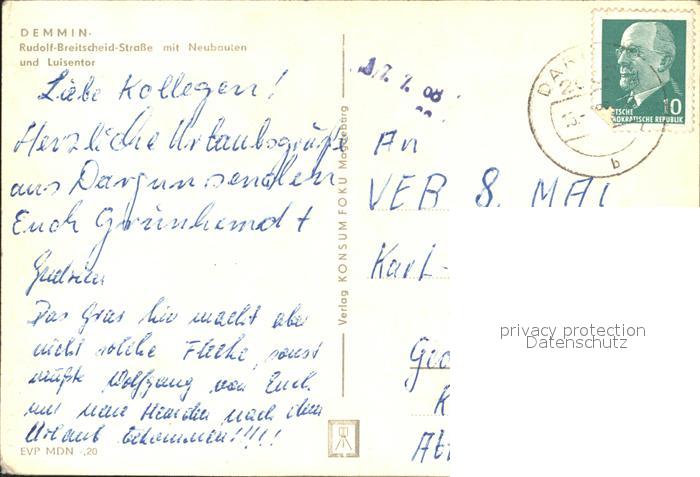 DEMMIN.
Rudolf-Breitscheid-Straße mit Neubauten
und Luisentor
Liebe Kollegen!
Herzliche Urlaubsgrüße
aus Dargun senden
Euch Grünhemdt
Das Gras hier macht aber
nicht solche Flecke, sonst
müßte Wolfgang von Euch
nur neue Hemden nach dem
Urlaub bekommen!!!!!
EVP MDN -,20
Verlag KONSUM FOKU Magdeburg
An
VEB 8. MAI
Karl-
DAR
b
10
DEUTSCHE
DEMOKRATISCHE REPUBLIK
privacy protection
Datenschutz